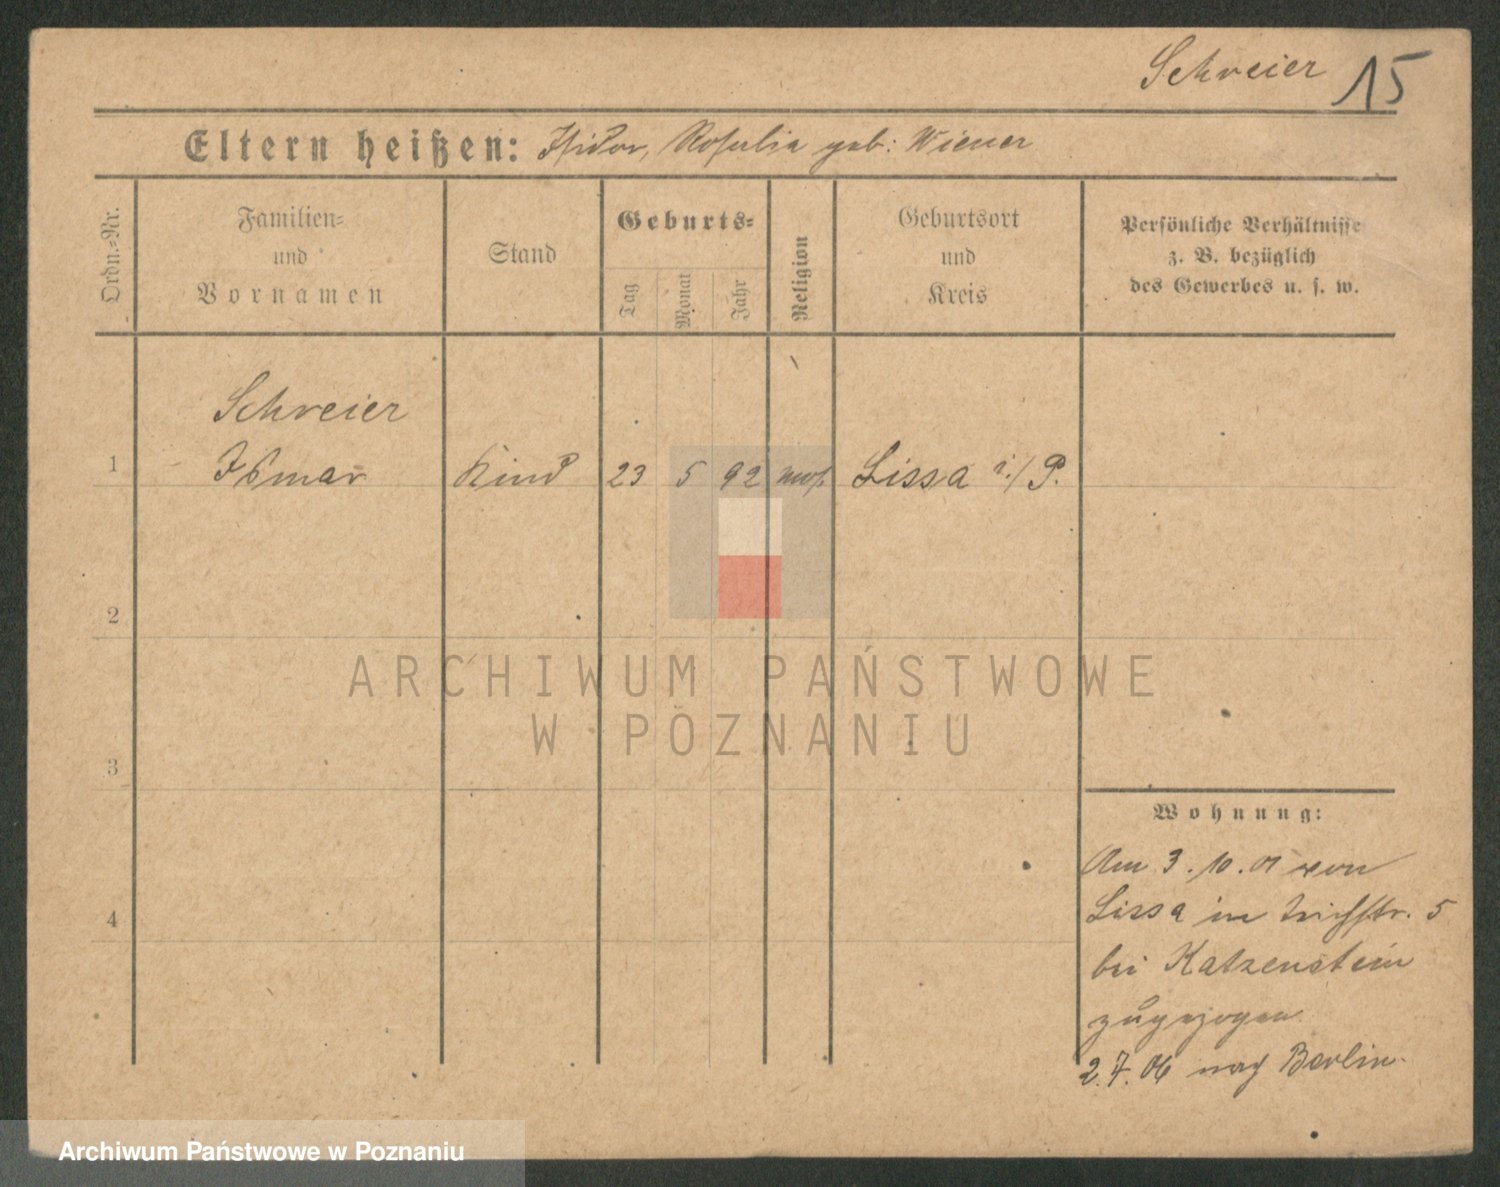 Schreier 15
Eltern heißen: Isidor, Rosalia geb: Wiener
Ordn.-Nr.
Familien-
und
Vornamen
Stand
Geburts-
Tag
Monat
Jahr
Religion
Geburtsort
und
Kreis
Persönliche Verhältnisse
z. B. bezüglich
des Gewerbes u. s. w.
Schreier
1 Ismar Kind 23 5 92 mos. Lissa i./P.
2
ARCHIWUM PAŃSTWOWE
W POZNANIU
3
Wohnung:
Am 3.10.01 von
4
Lissa in 5
bei Katzenstein
zugezogen
2.7.06 nach Berlin.
Archiwum Państwowe w Poznaniu